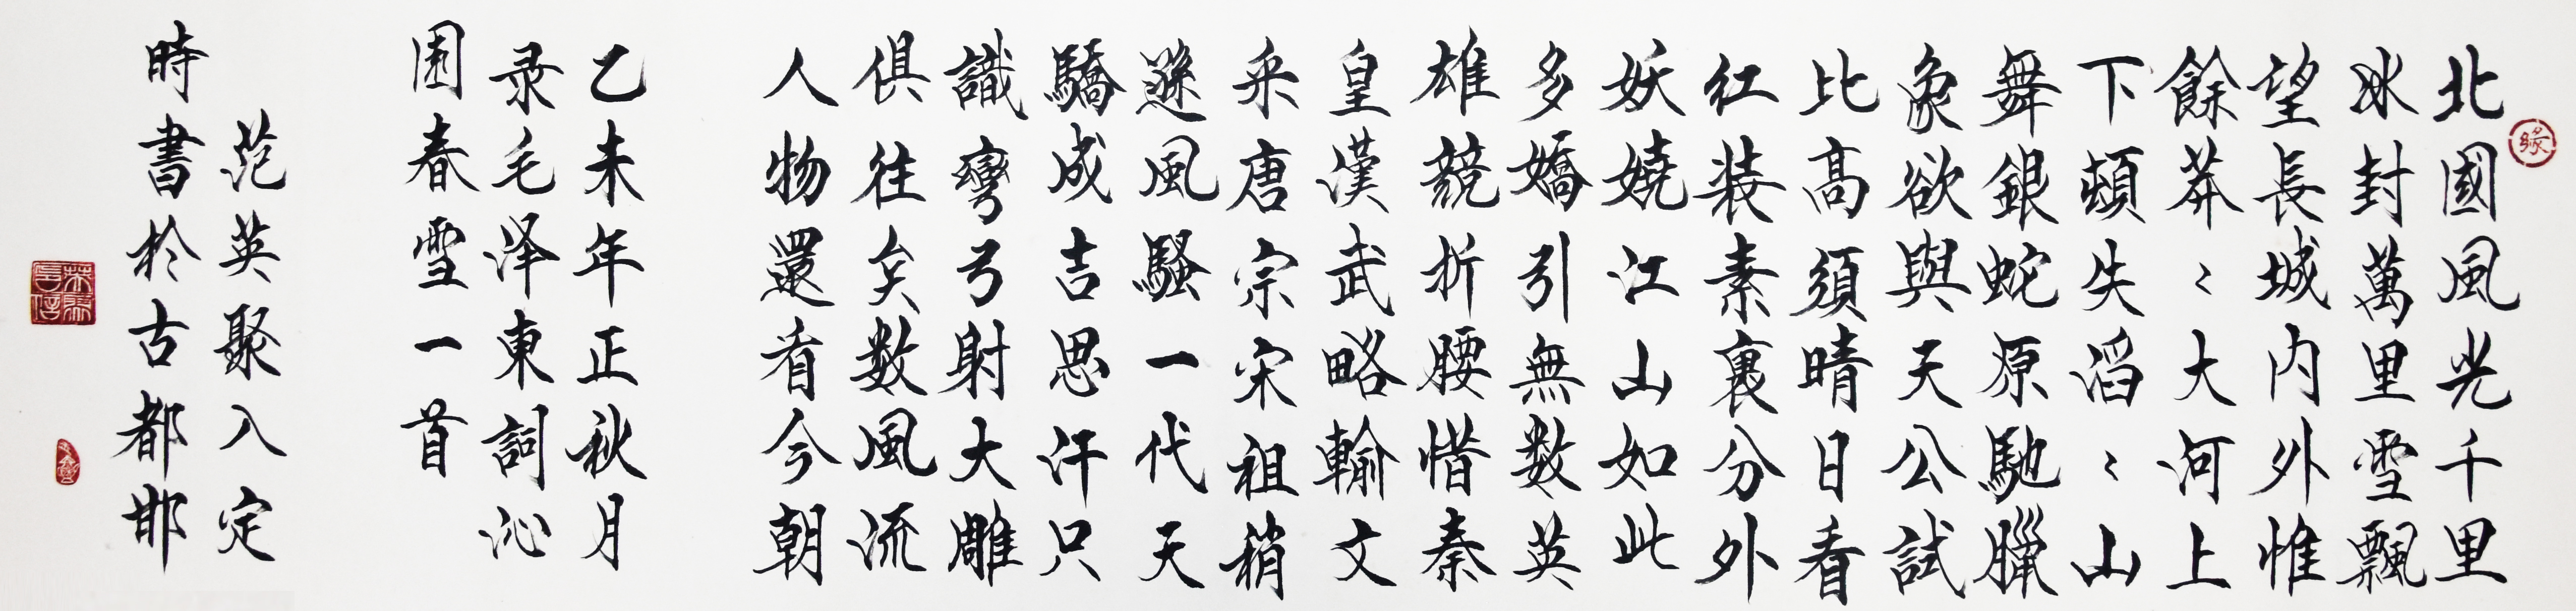 缘
北國風光千里
冰封萬里雪飄
望長城内外惟
餘莽〻大河上
下頓失滔〻山
舞銀蛇原馳臘
象欲與天公試
比高須晴日看
红装素裹分外
妖嬈江山如此
多嬌引無数英
雄競折腰惜秦
皇漢武略輸文
采唐宗宋祖稍
遜風騷一代天
驕成吉思汗只
識彎弓射大雕
俱往矣数風流
人物還看今朝
乙未年正秋月
录毛泽東詞沁
園春雪一首
范英聚入定
時書於古都邯